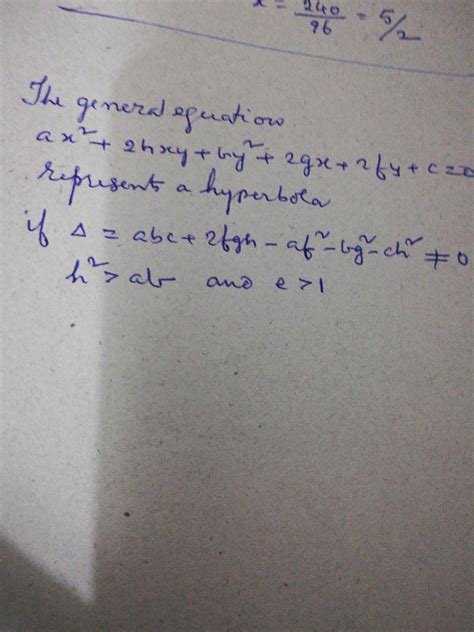 x = 240/96 = 5/2
The general equation
ax² + 2hxy + by² + 2gx + 2fy + c = 0
represents a hyperbola
if Δ = abc + 2fgh - af² - bg² - ch² ≠ 0
h² > ab and e > 1